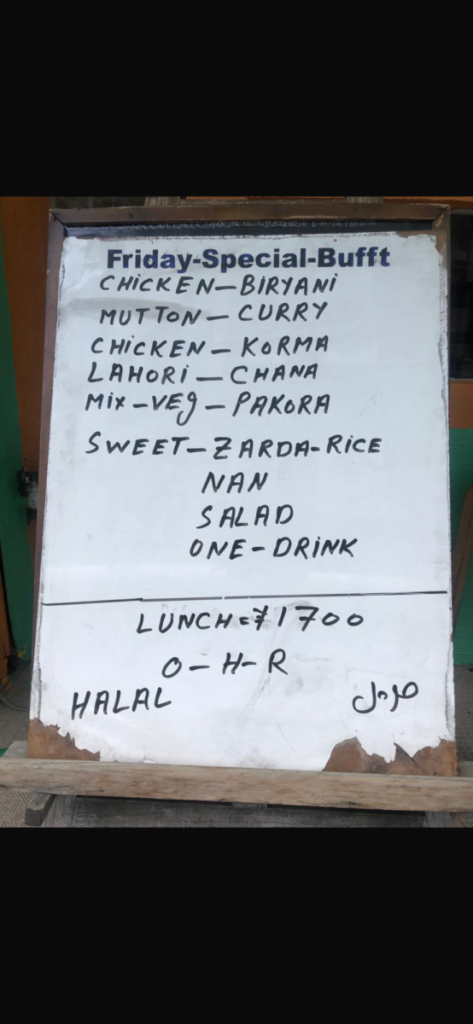 Friday-Special-Bufft
CHICKEN-BIRYANI
MUTTON-CURRY
CHICKEN-KORMA
LAHORI-CHANA
Mix-VEg-PAKORA
SWEET-ZARDA-RICE
NAN
SALAD
ONE-DRINK
LUNCH=¥1700
O-H-R
HALAL